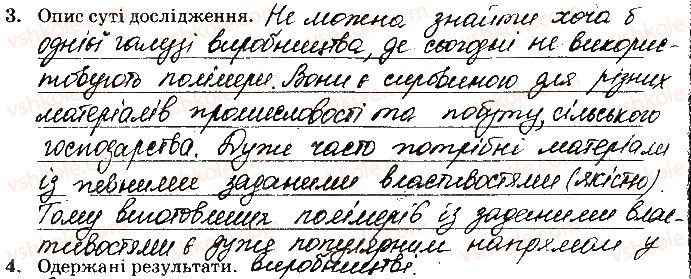 3. Опис суті дослідження. Не можна знайти хоча б
однієї галузі виробництва, де сьогодні не викорис-
товують полімери. Вони є сировиною для різних
матеріалів промисловості та побуту, сільського
господарства. Дуже часто потрібні матеріали
із певними заданими властивостями (якістю).
Тому виготовлення полімерів із заданими влас-
тивостями є дуже популярним напрямом у
4. Одержані результати. виробництві.